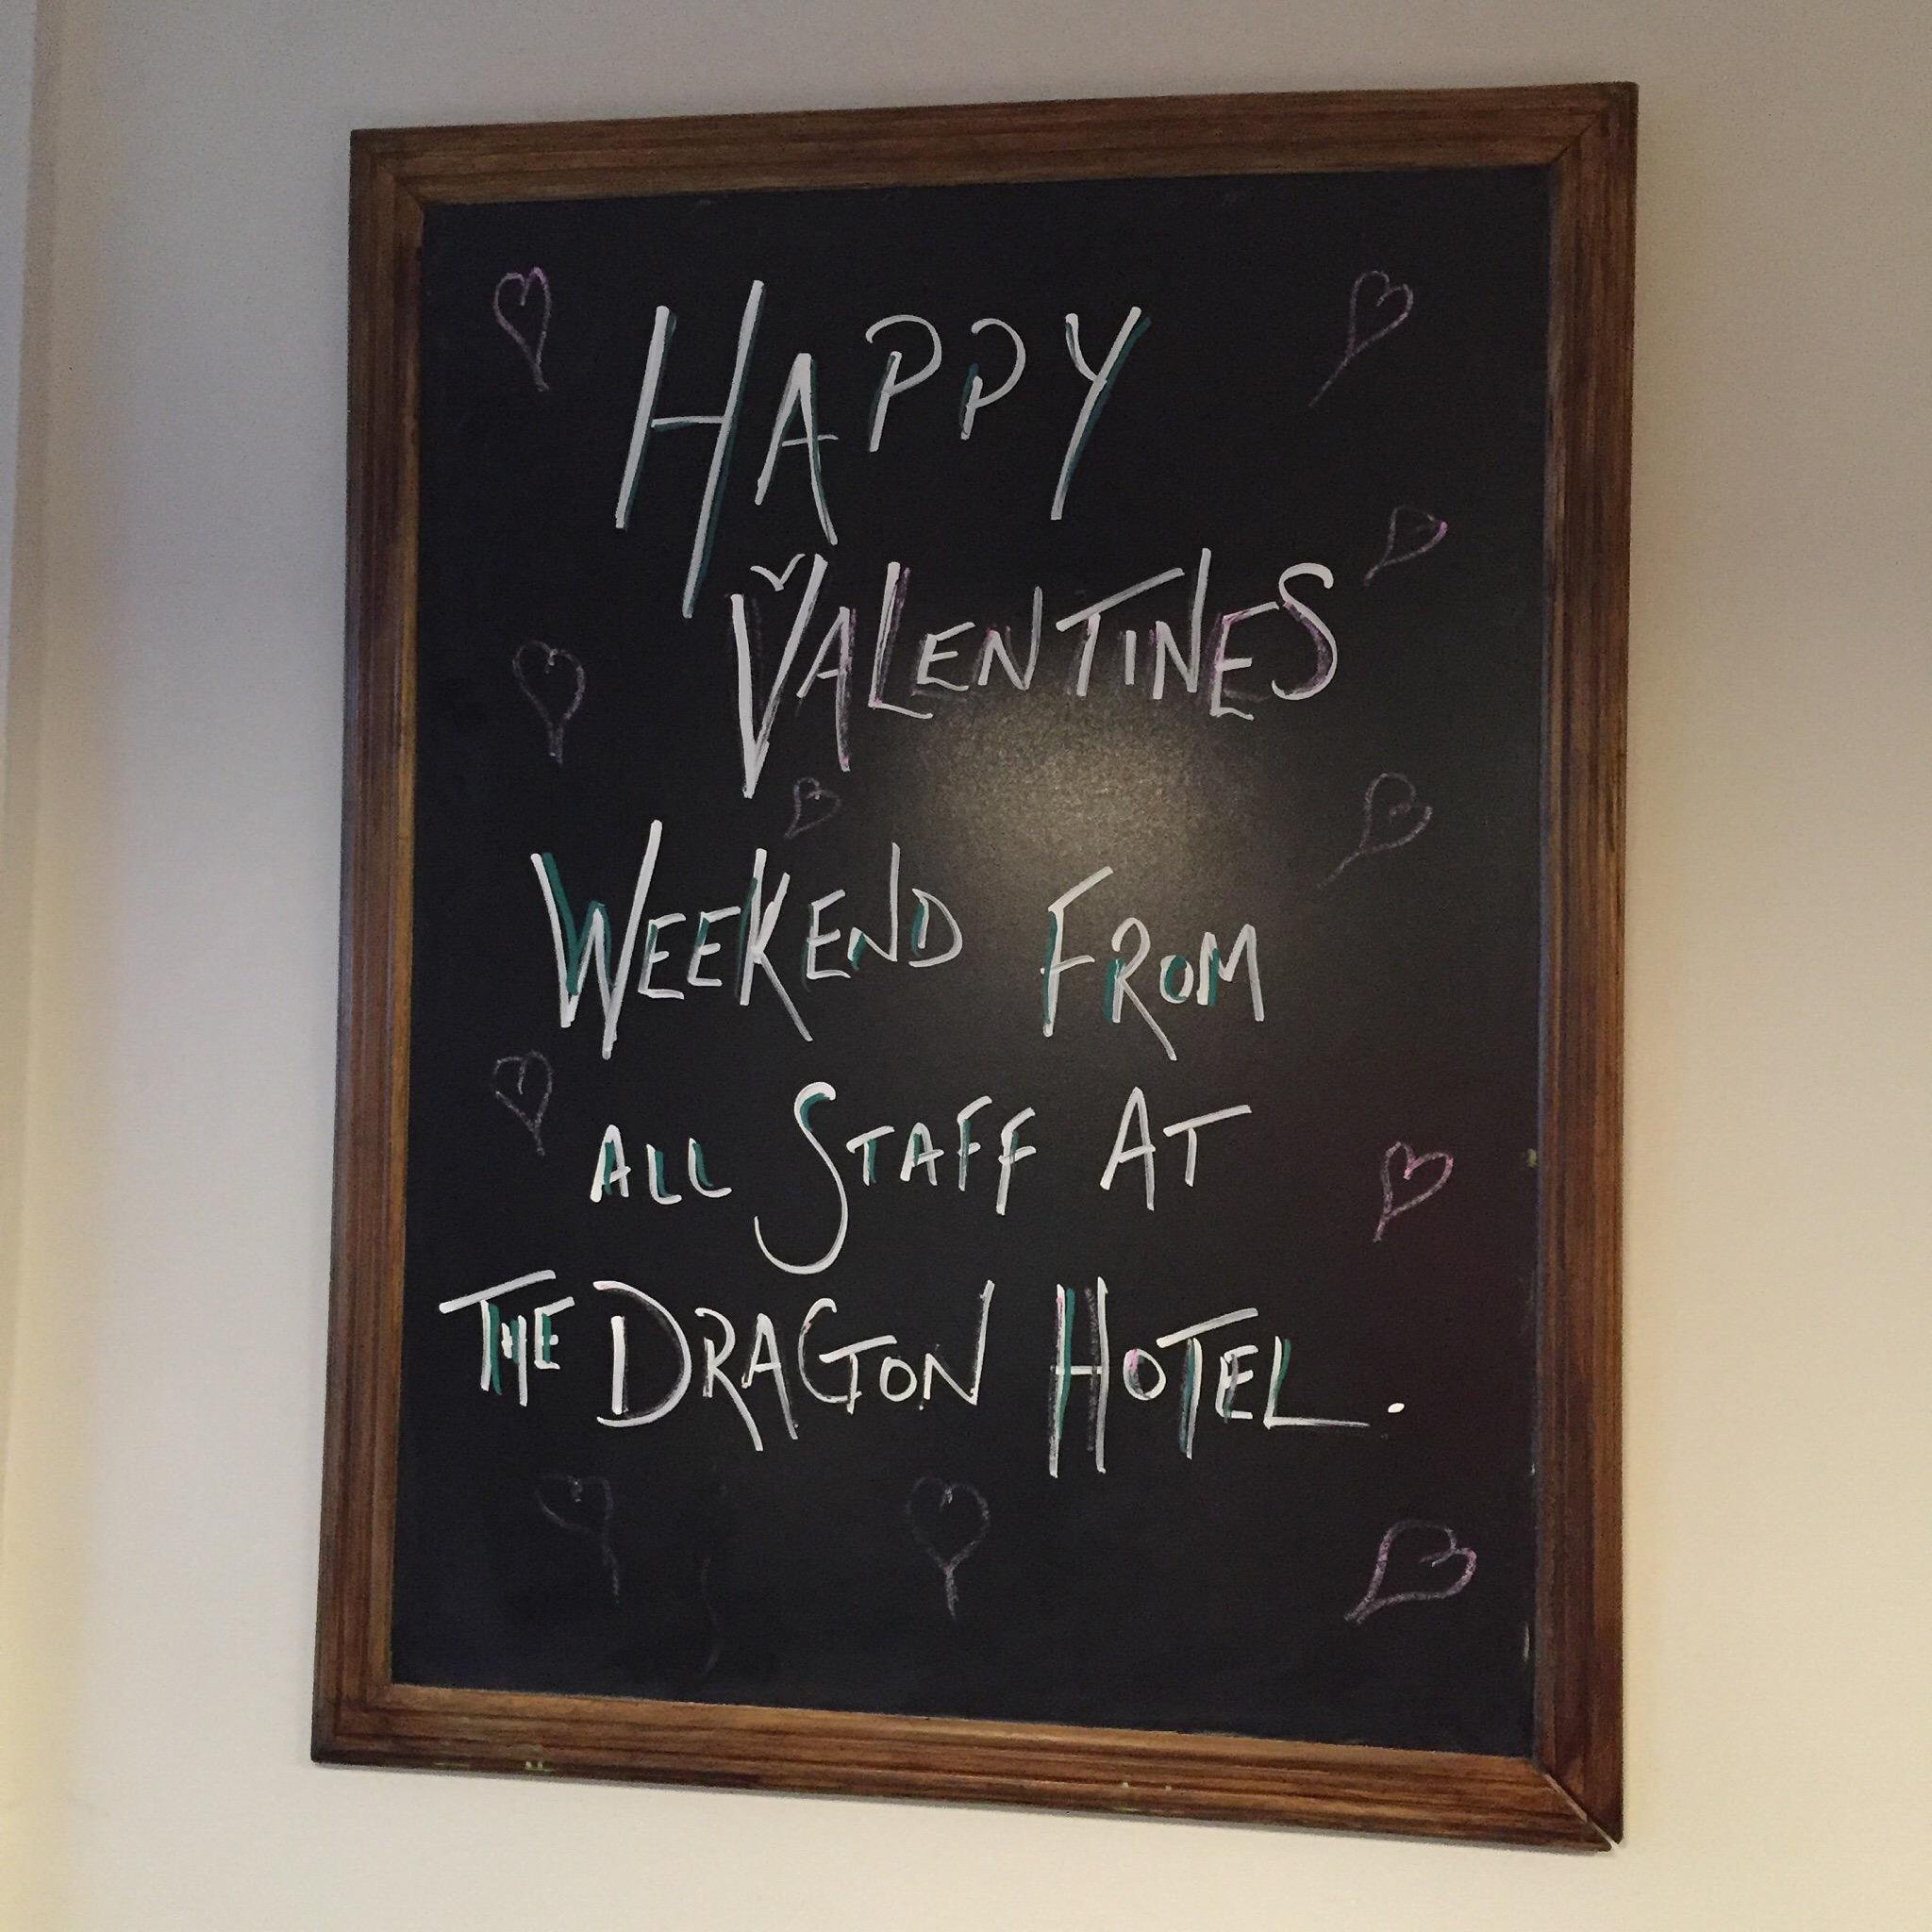 HAPPY
VALENTINES
WEEKEND FROM
ALL STAFF AT
THE DRAGON HOTEL.